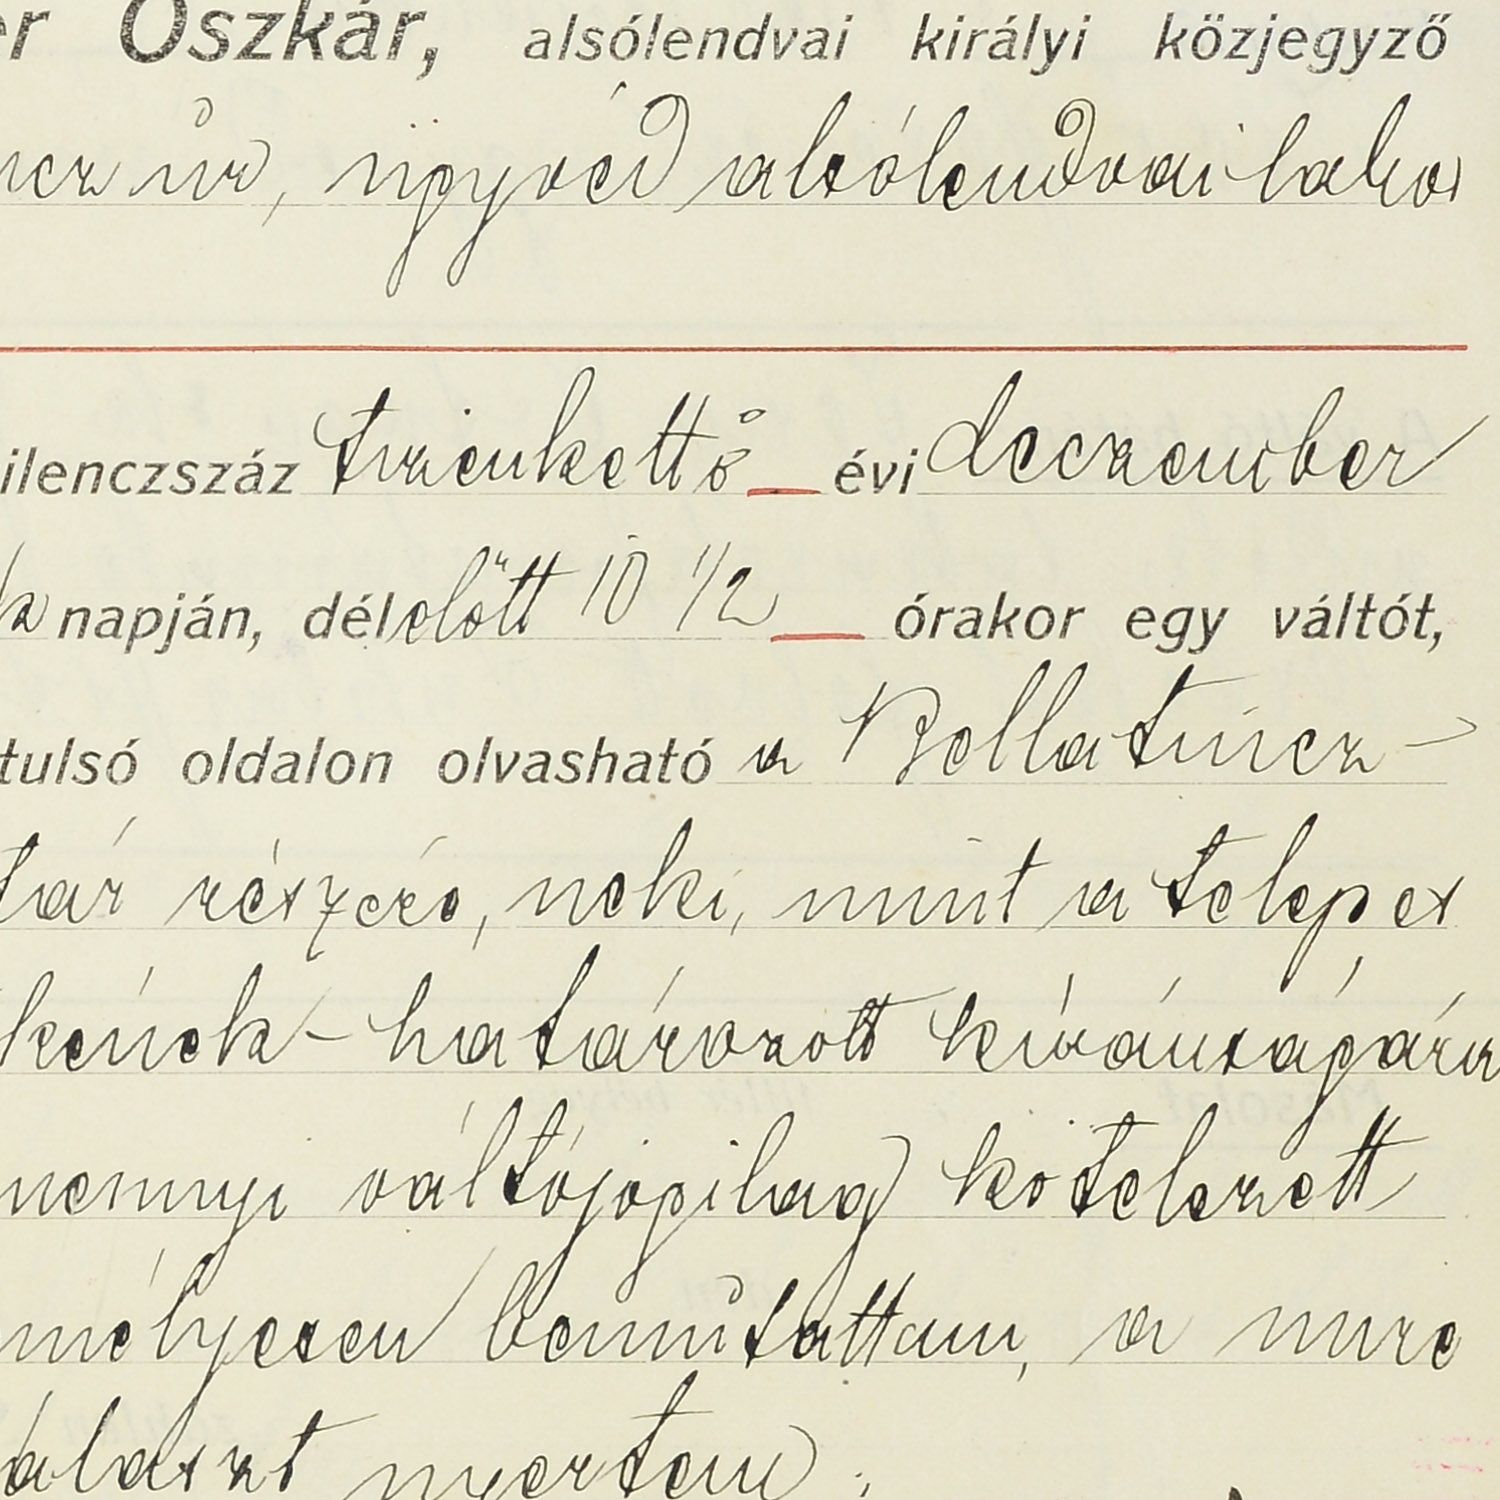 er Oszkár, alsólendvai királyi közjegyző
ncz úr, ügyvéd alsólendvai lakos
ilenczszáz tizenkettő évi deczember
napján, délelőtt 10 1/2 órakor egy váltót,
tulsó oldalon olvasható a Bellatincz-
tár részére, neki, mint a telepes
kének - határozott kívánságára
mennyi váltójogilag kötelezett
mélyesen bemutattam, a mire
álaszt nyertem: